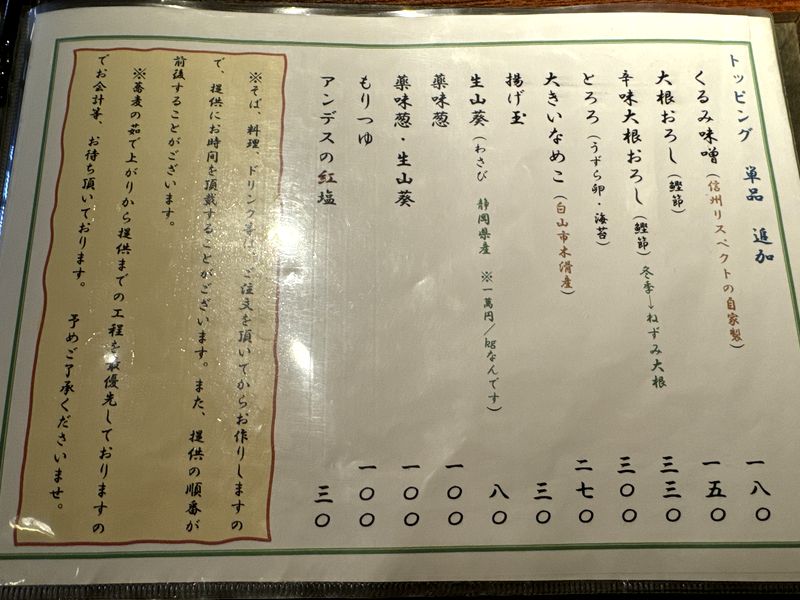 トッピング 単品 追加
くるみ味噌（信州リスペクトの自家製） 一八〇
大根おろし（鰹節） 一五〇
辛味大根おろし（鰹節）冬季→ねずみ大根 三三〇
とろろ（うずら卵・海苔） 三〇〇
大きいなめこ（白山市木滑産） 二七〇
揚げ玉 三〇
生山葵（わさび 静岡県産 ※一萬円／kgなんです） 八〇
薬味葱 一〇〇
薬味葱・生山葵 一〇〇
もりつゆ 一〇〇
アンデスの紅塩 三〇
※そば、料理、ドリンク等は、ご注文を頂いてからお作りしますの
で、提供にお時間を頂戴することがございます。また、提供の順番が
前後することがございます。
※蕎麦の茹で上がりから提供までの工程を最優先しておりますの
でお会計等、お待ち頂いております。 予めご了承くださいませ。